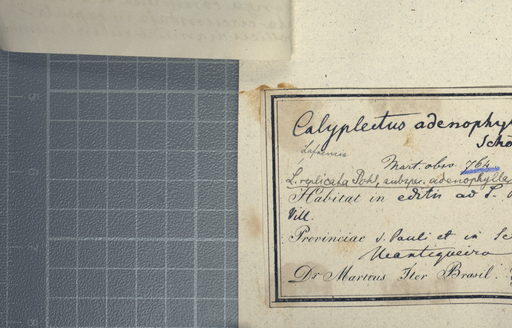 Calyplectus adenophy
Scho
Lafoensia
Mart. obs. 764
L. replicata Pohl, subspr. adenophylla
Habitat in editis ad S.
Vill.
Provinciae S. Pauli et in Se
Mantiqueira
Dr Martius Iter Brasil.